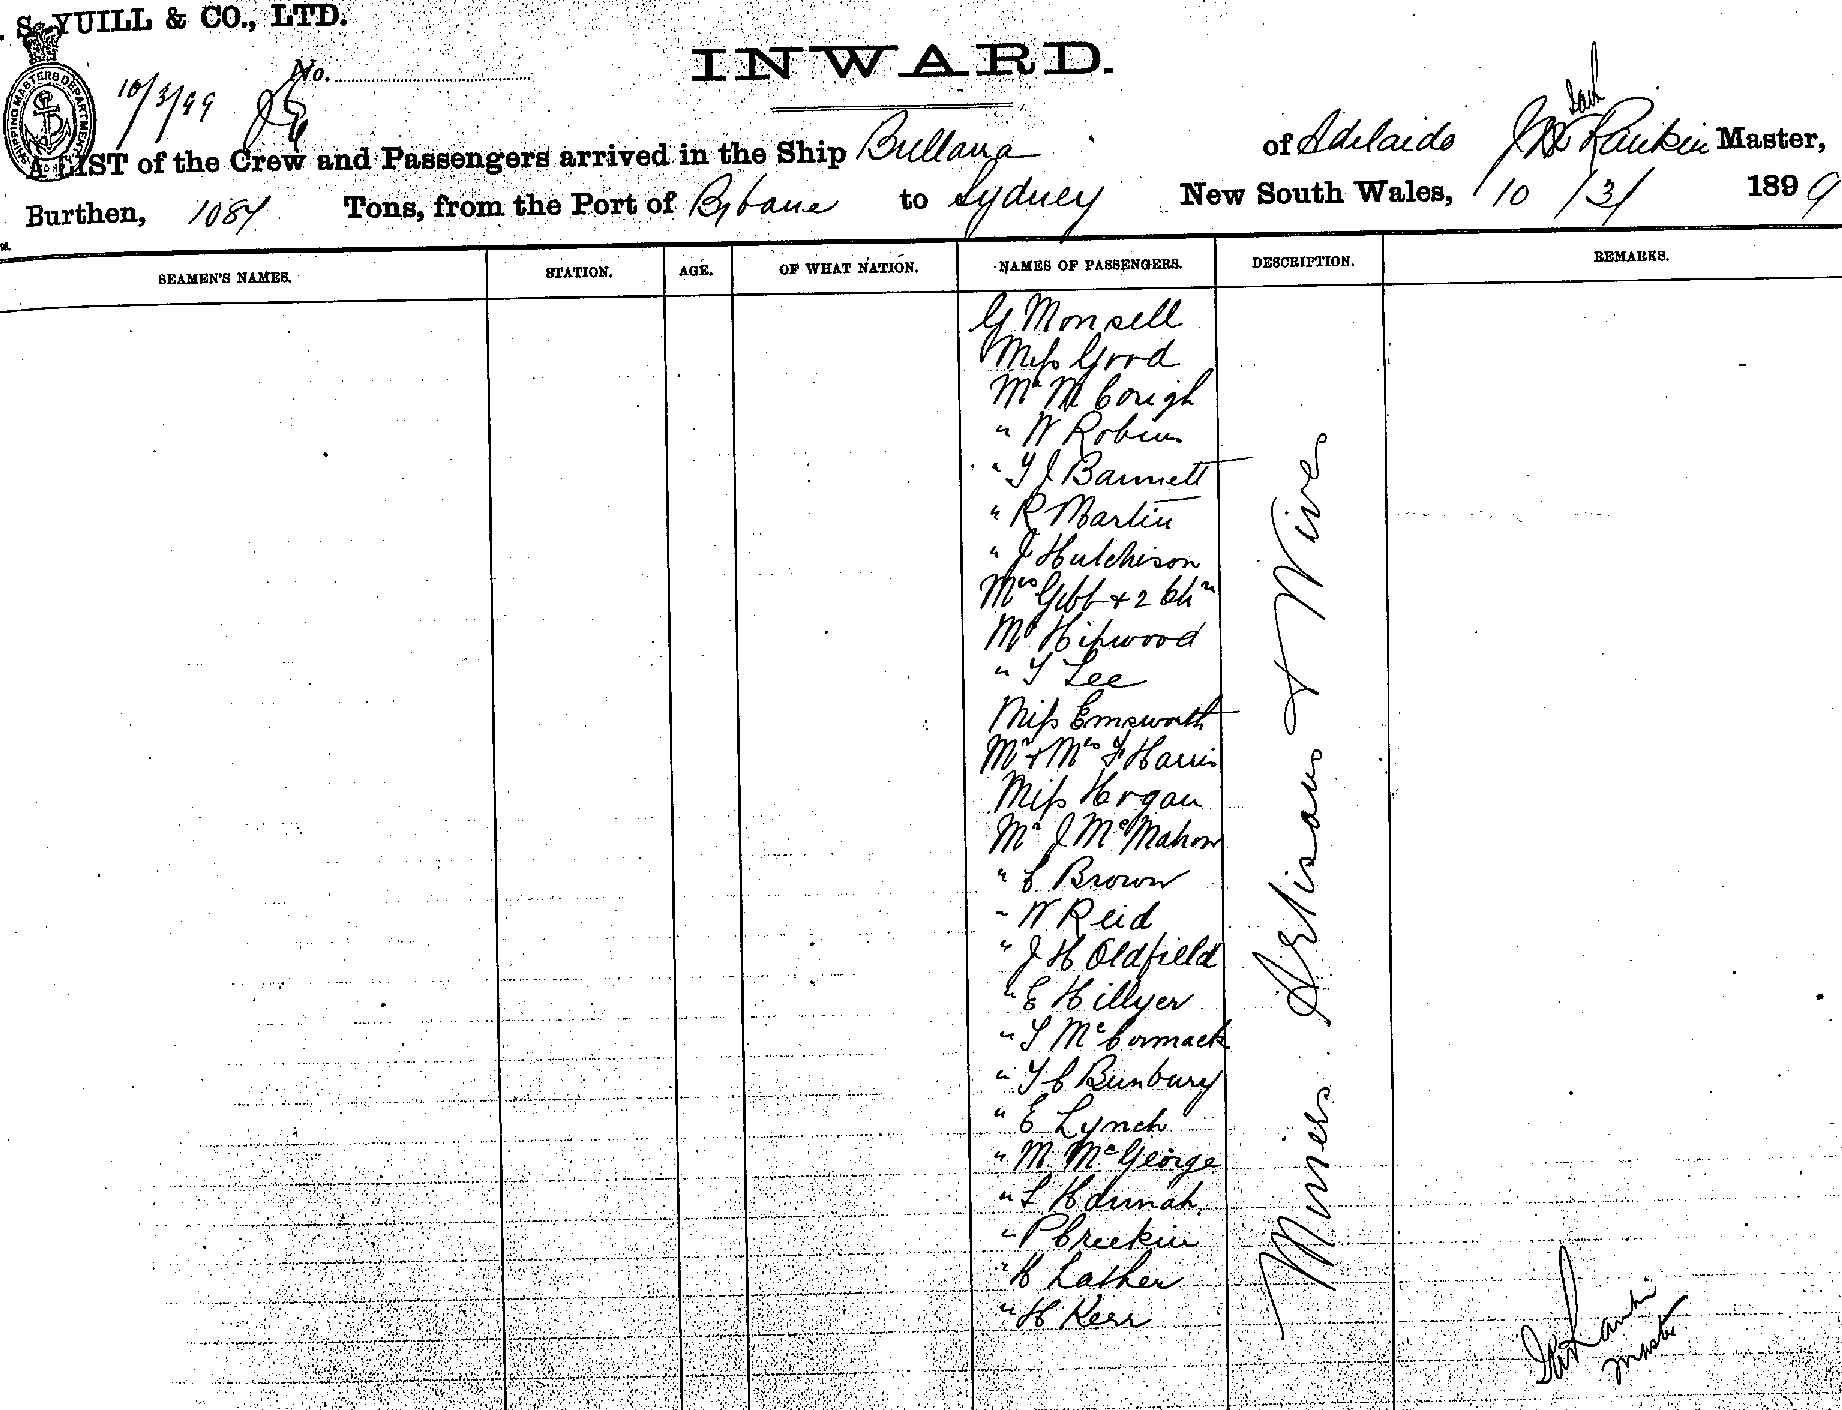 . S. YUILL & CO., LTD.
INWARD.
No.
10/3/99
SHIPPING MASTERS DEPARTMENT
A LIST of the Crew and Passengers arrived in the Ship Bullarra of Adelaide Rankin Master,
Burthen, 1084 Tons, from the Port of Bsbane to Sydney New South Wales, 10/3/ 1899
SEAMEN'S NAMES. STATION. AGE. OF WHAT NATION. NAMES OF PASSENGERS. DESCRIPTION. REMARKS.
G Monsell
Miss Good
Mr M Cough
" W Robins
" T J Barnett
" R Martin
" J Hutchison
Mrs Gibb + 2 Chn
Mr Hipwood
" T Lee
Miss Emsworth
Mr + Mrs F Harris
Miss Hogan
Mr J McMahon
" C Brown
" W Reid
" J H Oldfield
" E Hillyer
" T McCormack
" T C Bunbury
" E Lynch
" M McGeorge
" L Hannah
" P Creekin
" H Lather
" H Kerr
Miners Artisans & Wives
Rankin
Master